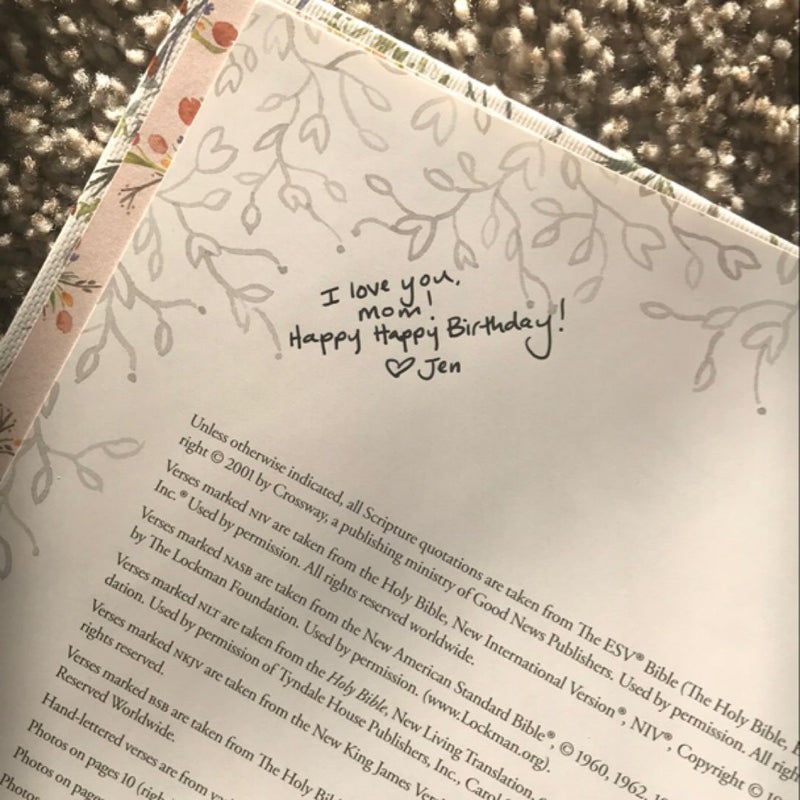 I love you,
mom!
Happy Happy Birthday!
♡ Jen
Unless otherwise indicated, all Scripture quotations are taken from The ESV® Bible (The Holy Bible,
right © 2001 by Crossway, a publishing ministry of Good News Publishers. Used by permission. All
Verses marked NIV are taken from the Holy Bible, New International Version®, NIV®, Copyright ©
Inc.® Used by permission. All rights reserved worldwide.
Verses marked NASB are taken from the New American Standard Bible®, © 1960, 1962,
by The Lockman Foundation. Used by permission. (www.Lockman.org).
Verses marked NLT are taken from the Holy Bible, New Living Translation,
dation. Used by permission of Tyndale House Publishers, Inc., Carol
Verses marked NKJV are taken from the New King James
rights reserved.
Verses marked BSB are taken from The Holy
Reserved Worldwide.
Hand-lettered verses are from
Photos on pages 10
Photos on
Photos